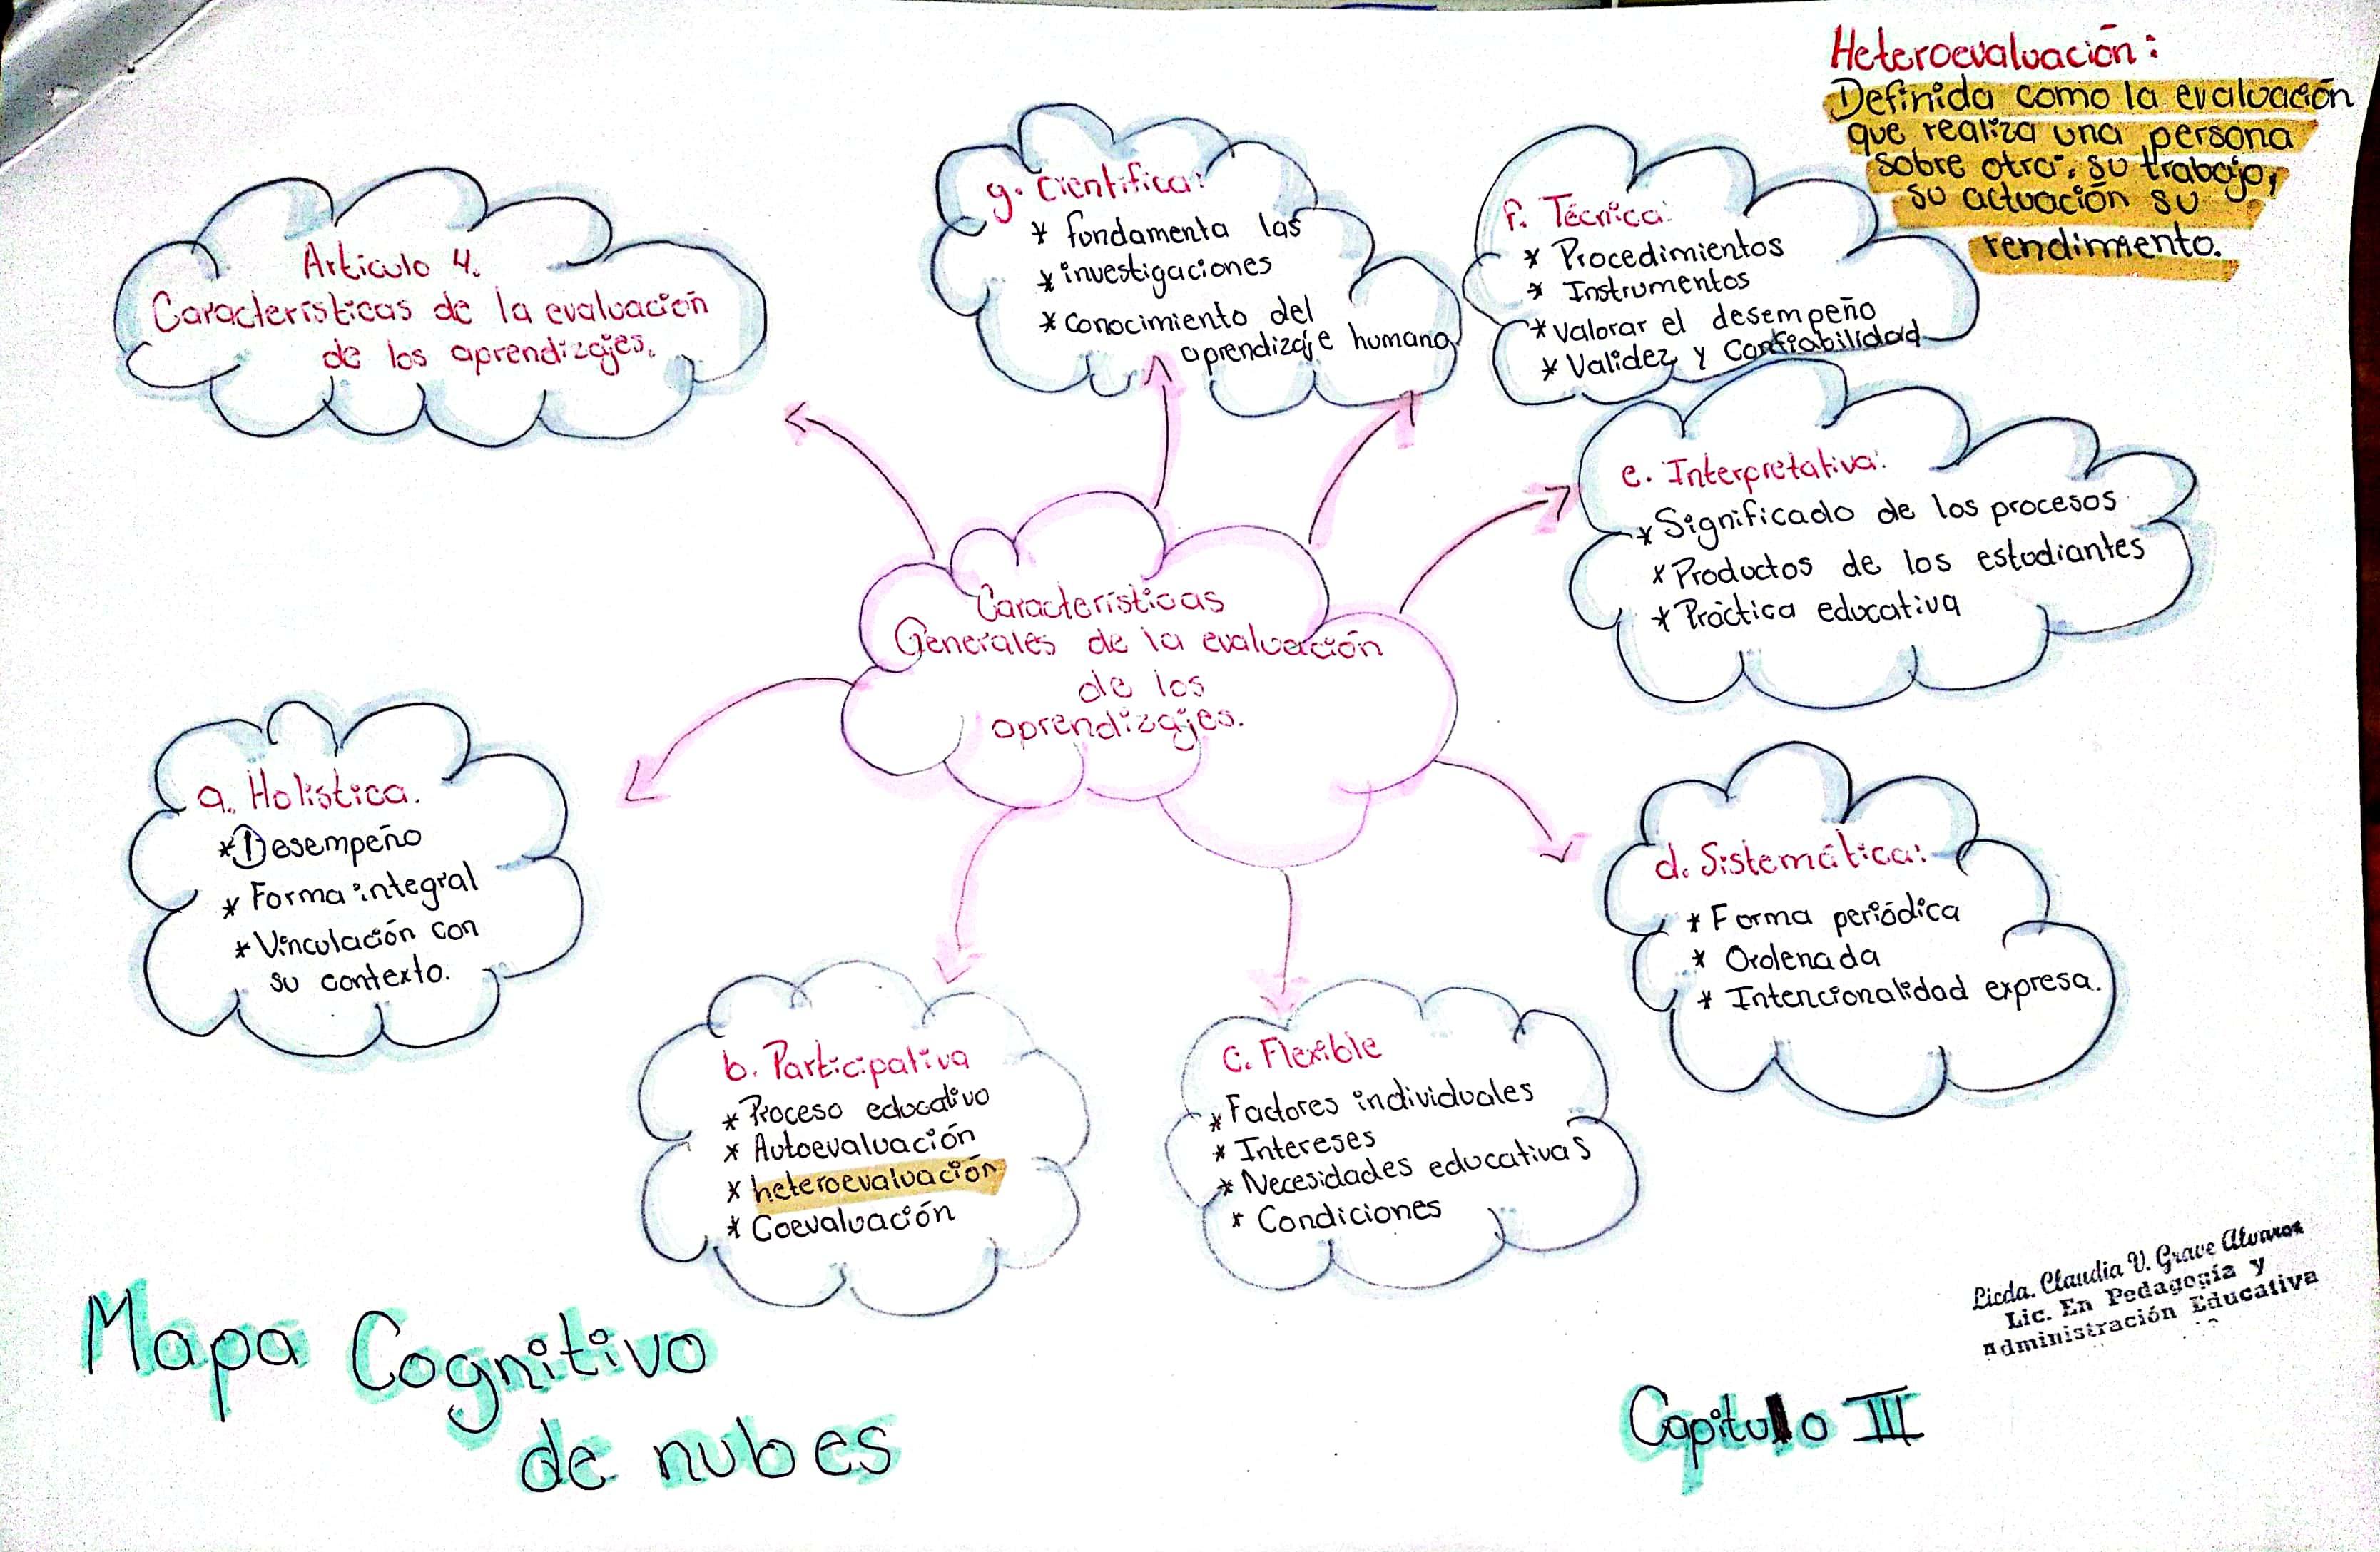 Heteroevaluación:
Definida como la evaluación
que realiza una persona
sobre otra: su trabajo,
su actuación su
rendimiento.
Articulo 4.
Características de la evaluación
de los aprendizajes.
g. Científica:
* fundamenta las
* investigaciones
* Conocimiento del
aprendizaje humano
f. Técnica:
* Procedimientos
* Instrumentos
* Valorar el desempeño
* Validez y Confiabilidad
e. Interpretativa:
* Significado de los procesos
* Productos de los estudiantes
* Práctica educativa
Características
Generales de la evaluación
de los
aprendizajes.
a. Holística.
* Desempeño
* Forma integral
* Vinculación con
su contexto.
d. Sistemática:
* Forma periódica
* Ordenada
* Intencionalidad expresa.
b. Participativa
* Proceso educativo
* Autoevaluación
* heteroevaluación
* Coevaluación
c. Flexible
* Factores individuales
* Intereses
* Necesidades educativas
* Condiciones
Licda. Claudia V. Grave Alvarez
Lic. En Pedagogía y
Administración Educativa
Mapa Cognitivo
de nubes
Capitulo III